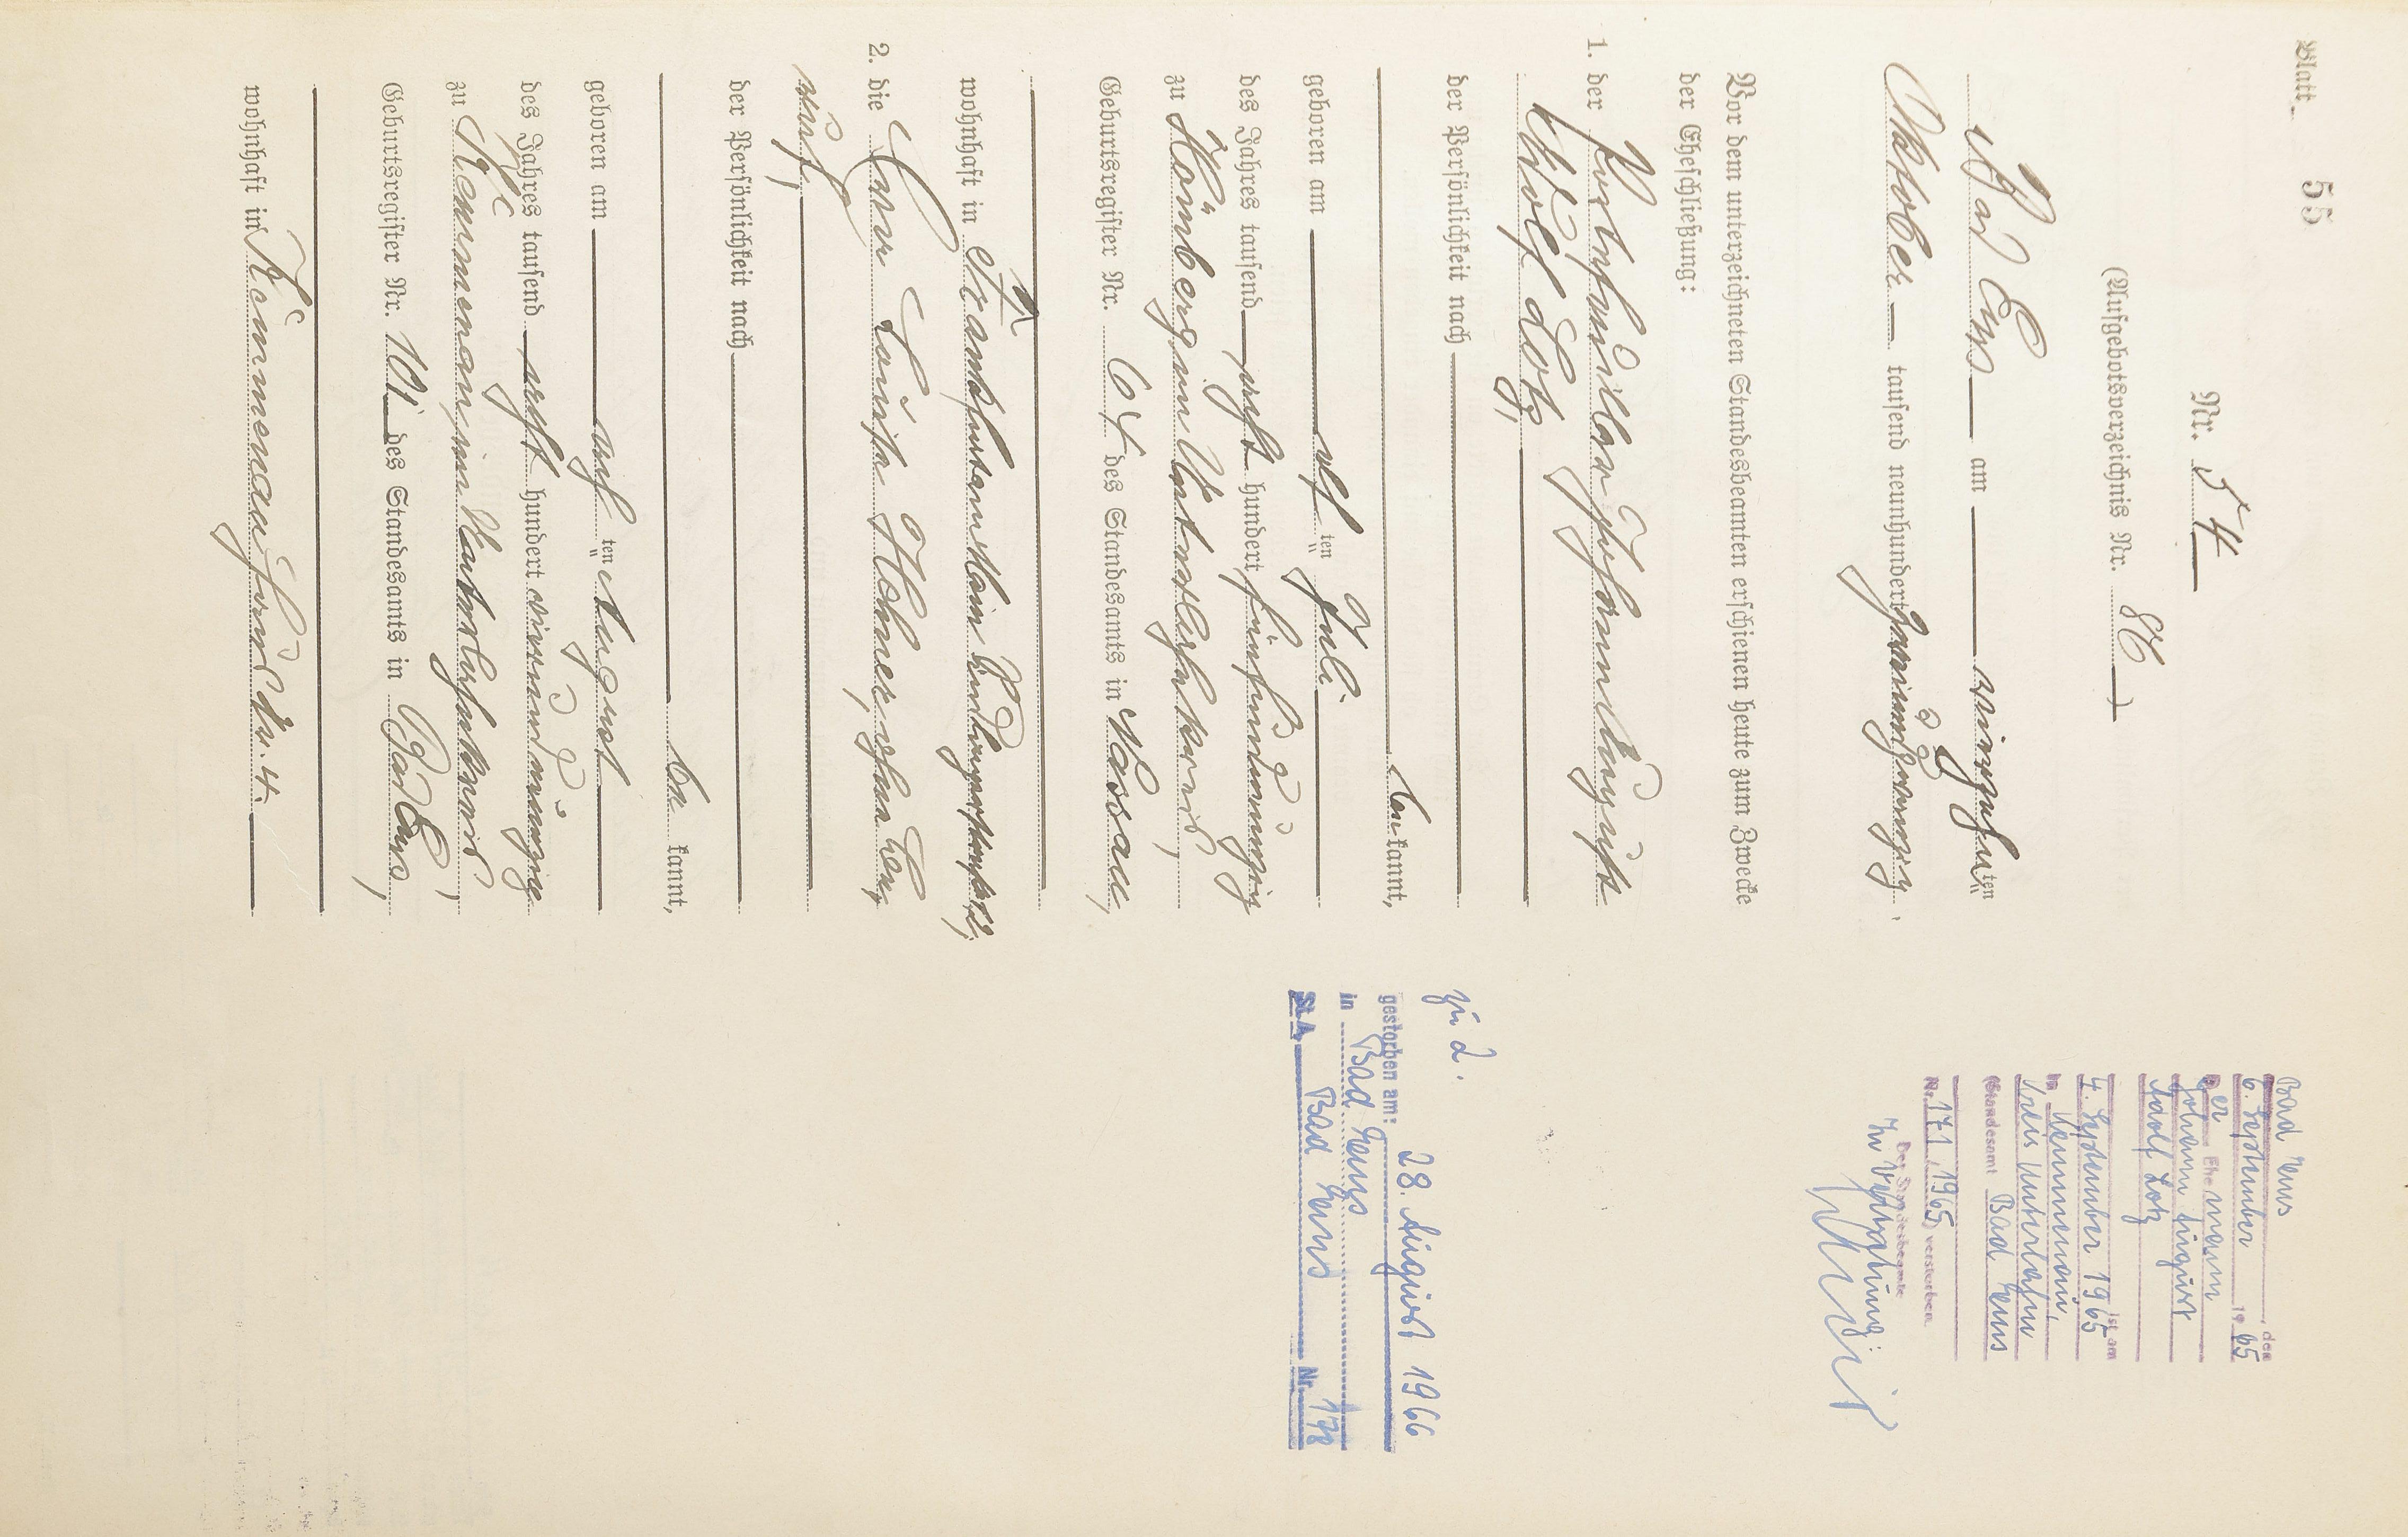 Blatt 55
Nr. 54
(Aufgebotsverzeichnis Nr. 86)
Bad Ems am vierzehnten
Oktober tausend neunhundert zweiundzwanzig.
Vor dem unterzeichneten Standesbeamten erschienen heute zum Zwecke
der Eheschließung:
1. der Johann August
Adolf Lotz,
der Persönlichkeit nach
bekannt,
geboren am elften Juli
des Jahres tausend acht hundert fünfundneunzig
zu Hömberg im Unterlahnkreis,
Geburtsregister Nr. 64 des Standesamts in Nassau,
wohnhaft in Frankfurt am Main
2. die Sara Luise Hohner, ohne Be-
ruf,
der Persönlichkeit nach
bekannt,
geboren am August
des Jahres tausend acht hundert vierundneunzig
zu Kemmenau im Unterlahnkreis,
Geburtsregister Nr. 101 des Standesamts in Bad Ems,
wohnhaft in Kemmenau, Nr. 4.
Bad Ems, den
6. September 1965
Der Ehemann
Johann August
Adolf Lotz
ist am
4. September 1965
in Kemmenau,
Kreis Unterlahn
(Standesamt Bad Ems
Nr. 171/1965) verstorben.
Der Standesbeamte
In Vertretung:
zu 2.
gestorben am: 28. August 1966
in Bad Ems
St. A. Bad Ems Nr. 178